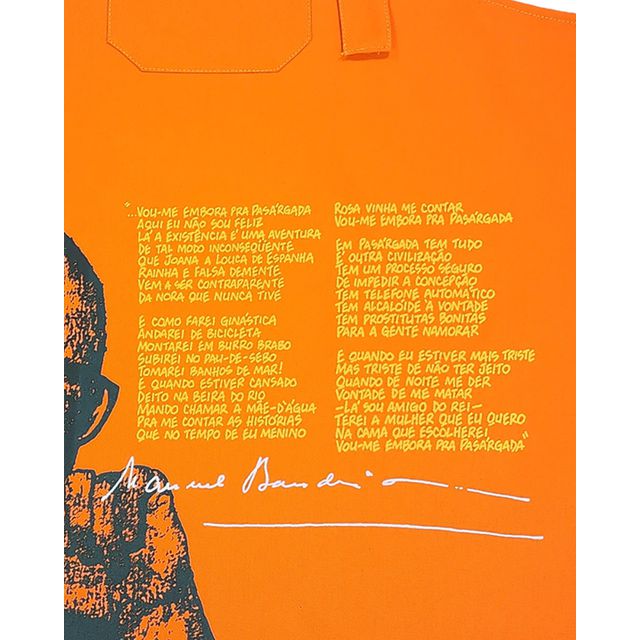 "...VOU-ME EMBORA PRA PASÁRGADA
AQUI EU NÃO SOU FELIZ
LÁ A EXISTÊNCIA É UMA AVENTURA
DE TAL MODO INCONSEQÜENTE
QUE JOANA A LOUCA DE ESPANHA
RAINHA E FALSA DEMENTE
VEM A SER CONTRAPARENTE
DA NORA QUE NUNCA TIVE

E COMO FAREI GINÁSTICA
ANDAREI DE BICICLETA
MONTAREI EM BURRO BRABO
SUBIREI NO PAU-DE-SEBO
TOMAREI BANHOS DE MAR!
E QUANDO ESTIVER CANSADO
DEITO NA BEIRA DO RIO
MANDO CHAMAR A MÃE-D'ÁGUA
PRA ME CONTAR AS HISTÓRIAS
QUE NO TEMPO DE EU MENINO

ROSA VINHA ME CONTAR
VOU-ME EMBORA PRA PASÁRGADA

EM PASÁRGADA TEM TUDO
É OUTRA CIVILIZAÇÃO
TEM UM PROCESSO SEGURO
DE IMPEDIR A CONCEPÇÃO
TEM TELEFONE AUTOMÁTICO
TEM ALCALÓIDE À VONTADE
TEM PROSTITUTAS BONITAS
PARA A GENTE NAMORAR

E QUANDO EU ESTIVER MAIS TRISTE
MAS TRISTE DE NÃO TER JEITO
QUANDO DE NOITE ME DER
VONTADE DE ME MATAR
-LÁ SOU AMIGO DO REI-
TEREI A MULHER QUE EU QUERO
NA CAMA QUE ESCOLHEREI
VOU-ME EMBORA PRA PASÁRGADA"
Manuel Bandeira